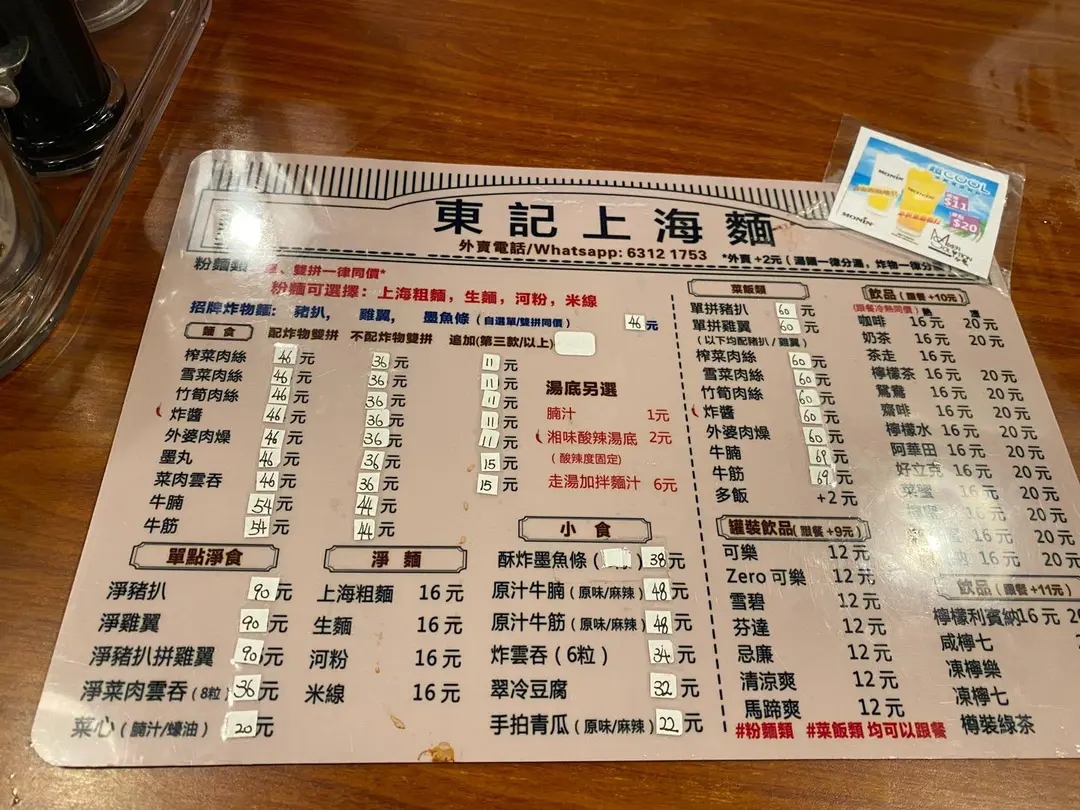 東記上海麵
外賣電話/Whatsapp: 6312 1753
*外賣 +2元 ( 湯麵一律分湯, 炸物一律分
粉麵類 、雙拼一律同價*
粉麵可選擇: 上海粗麵, 生麵, 河粉, 米線
招牌炸物麵: 豬扒, 雞翼, 墨魚條 (自選單/雙拼同價) 46 元
麵食 配炸物雙拼 不配炸物雙拼 追加(第三款/以上)
榨菜肉絲 46 元 36 元 11 元
雪菜肉絲 46 元 36 元 11 元
竹筍肉絲 46 元 36 元 11 元
炸醬 46 元 36 元 11 元
外婆肉燥 46 元 36 元 11 元
墨丸 46 元 36 元 15 元
菜肉雲吞 46 元 36 元 15 元
牛腩 54 元 44 元
牛筋 54 元 44 元
湯底另選
腩汁 1元
湘味酸辣湯底 2元
(酸辣度固定)
走湯加拌麵汁 6元
單點淨食
淨豬扒 90 元
淨雞翼 90 元
淨豬扒拼雞翼 90 元
淨菜肉雲吞 (8粒) 36 元
菜心 (腩汁/蠔油) 20 元
淨麵
上海粗麵 16 元
生麵 16 元
河粉 16 元
米線 16 元
小食
酥炸墨魚條 ( ) 38 元
原汁牛腩 (原味/麻辣) 48 元
原汁牛筋 (原味/麻辣) 48 元
炸雲吞 (6粒) 34 元
翠冷豆腐 32 元
手拍青瓜 (原味/麻辣) 22 元
菜飯類
單拼豬扒 60 元
單拼雞翼 60 元
(以下均配豬扒 / 雞翼)
榨菜肉絲 60 元
雪菜肉絲 60 元
竹筍肉絲 60 元
炸醬 60 元
外婆肉燥 60 元
牛腩 69 元
牛筋 69 元
多飯 +2 元
罐裝飲品 (跟餐 +9元)
可樂 12 元
Zero 可樂 12 元
雪碧 12 元
芬達 12 元
忌廉 12 元
清涼爽 12 元
馬蹄爽 12 元
#粉麵類 #菜飯類 均可以跟餐
飲品 (跟餐 +10元)
(跟餐冷熱同價) 熱
咖啡 16 元 20 元
奶茶 16 元 20 元
茶走 16 元
檸檬茶 16 元 20 元
鴛鴦 16 元 20 元
齋啡 16 元 20 元
檸檬水 16 元 20 元
阿華田 16 元 20 元
好立克 16 元 20 元
菜蜜 16 元 20 元
20 元
元 20 元
元 20元
飲品 (跟餐 +11元)
檸檬利賓納 16 元
咸檸七
凍檸樂
凍檸七
樽裝綠茶
COOL
MONIN
MONIN
$11
$20